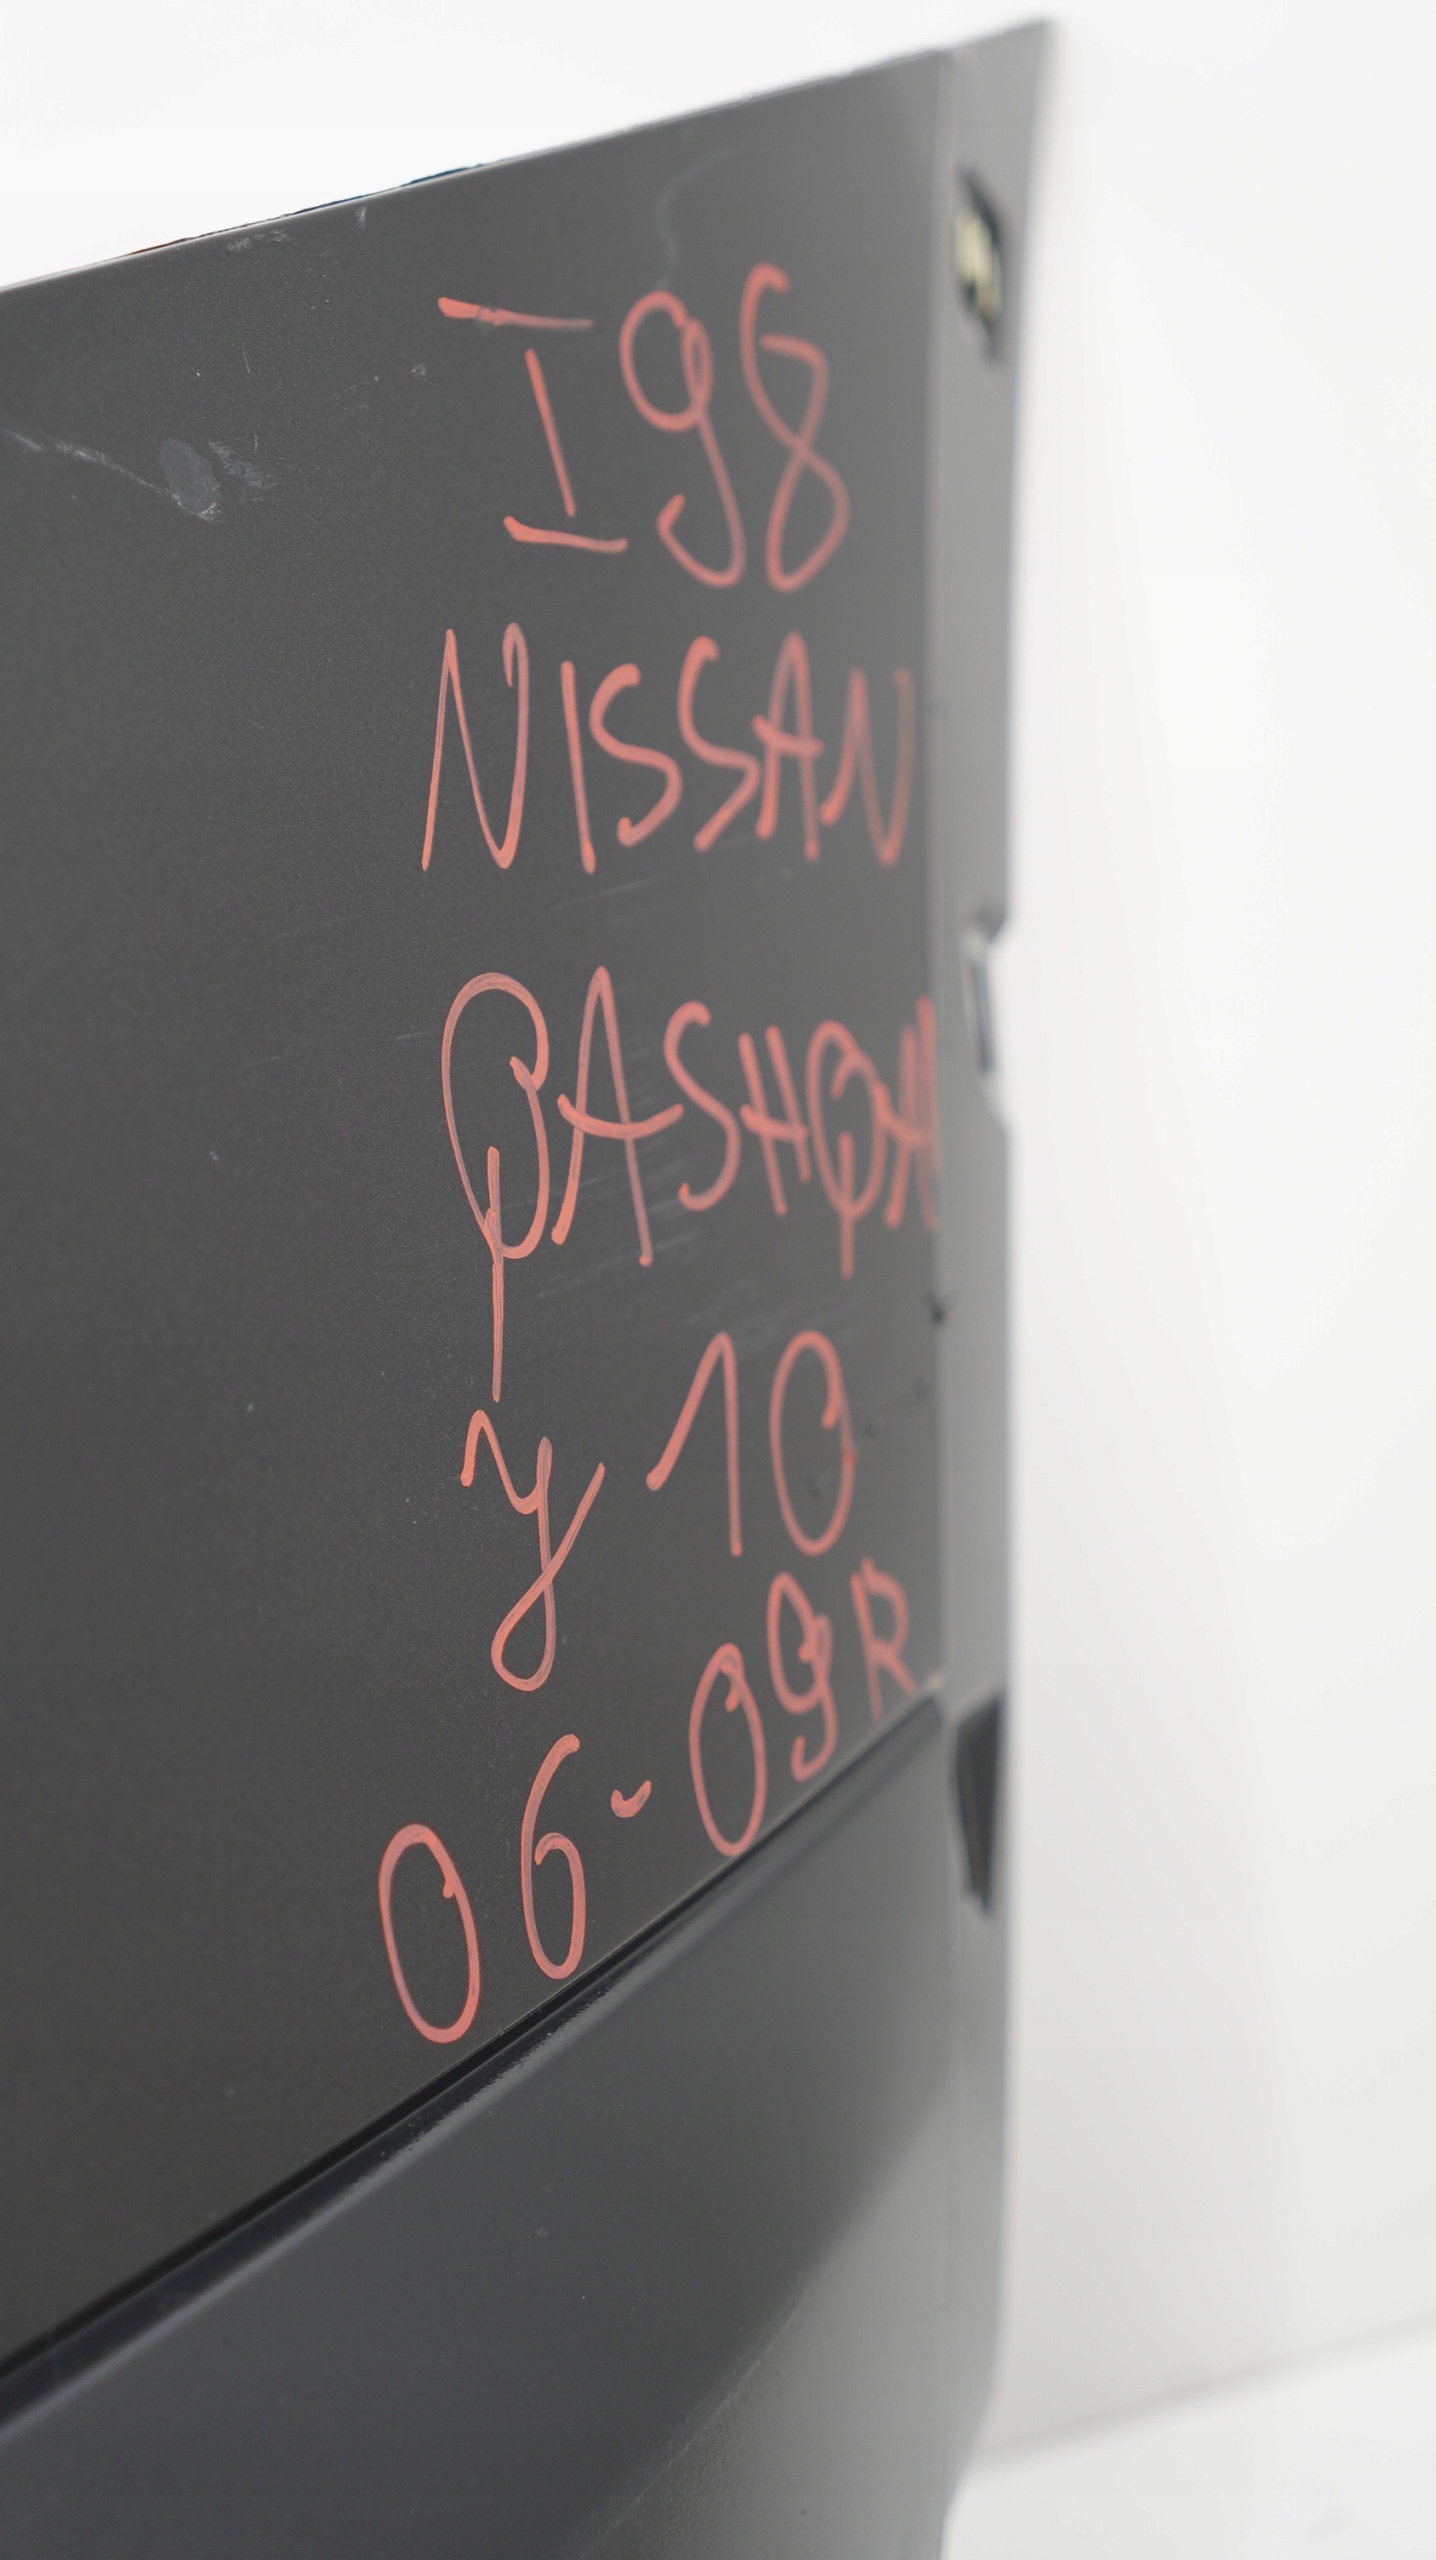 I98
NISSAN
QASHQAI
y 10
06-09R